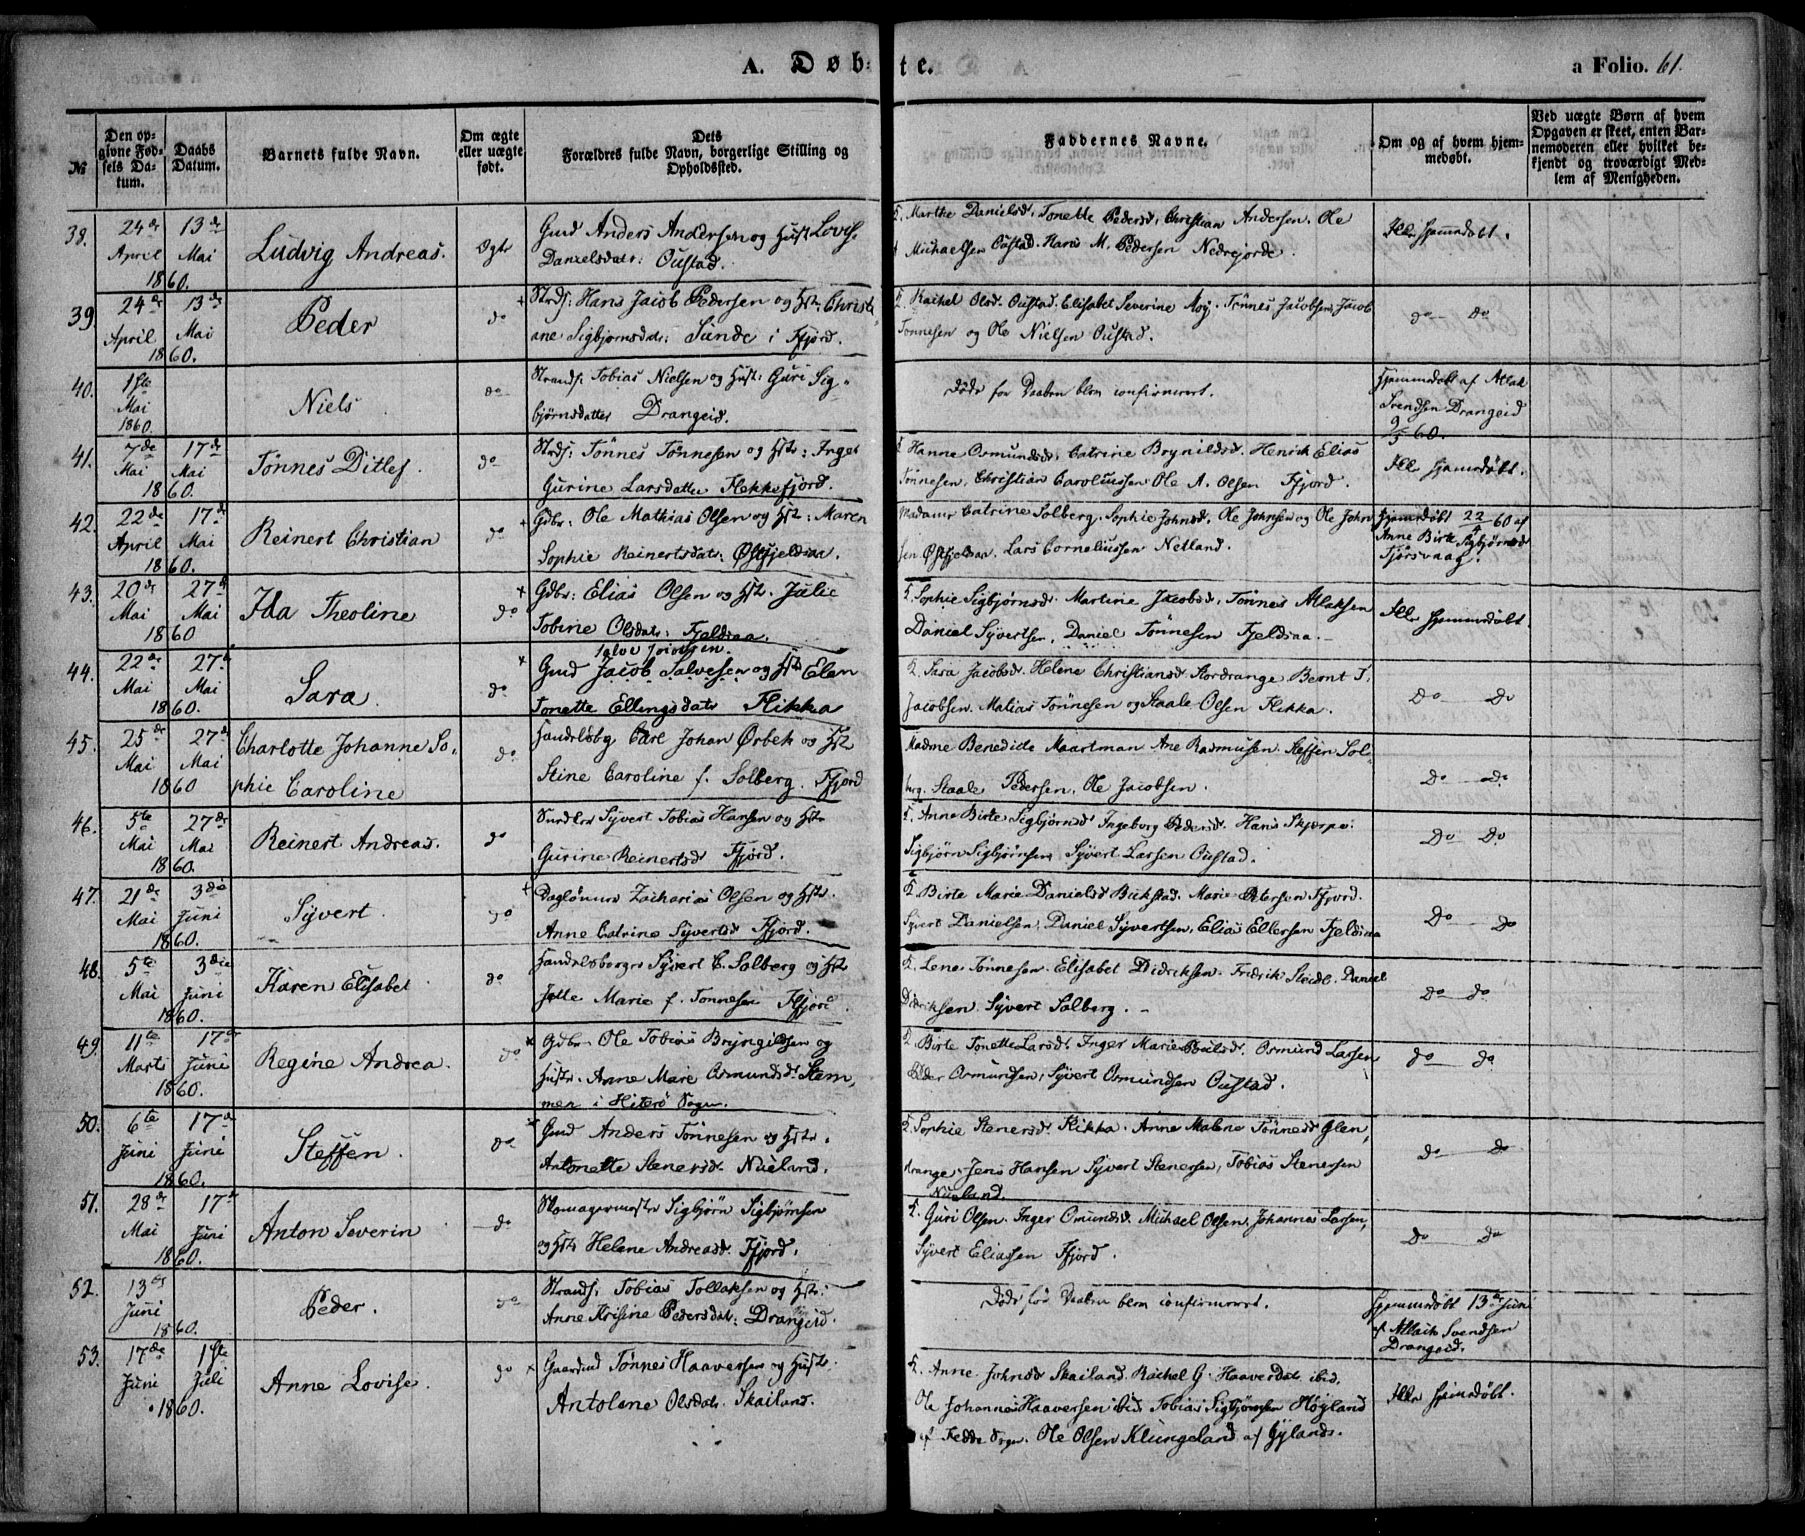 A. Døbte.
a Folio. 61.
No
Den opgivne Fødsels Datum.
Daabs Datum.
Barnets fulde Navn.
Om ægte eller uægte født.
Dets Forældres fulde Navn, borgerlige Stilling og Opholdssted.
Faddernes Navne.
Om og af hvem hjemmedøbt.
Ved uægte Børn af hvem Opgaven er skeet, enten Barnemoderen eller hvilket bekjendt og troværdigt Medlem af Menigheden.
38. 24de April 1860. 13de Mai Ludvig Andreas. Ægte
Gmd Anders Andersen og Hust Lovise
Danielsdatr: Oustad.
F. Marthe Danielsd, Tonette Pedersd, Christian Andersen, Ole
Michaelsen Oustad. Hans M. Pedersen Nedrejorde.
Ikke hjemmedøbt.
39. 24de April 1860. 13de Mai Peder do
Strds: Hans Jacob Pedersen og Hst: Christi
ane Sigbjørnsdatr: Sunde i Ffjord.
F. Rachel Olsd. Oustad, Elisabet Severine Moy. Tønnes Jacobsen, Jacob
Tønnesen og Ole Nielsen Oustad.
do do
40. 1ste Mai 1860. Niels do
Strands: Tobias Nielsen og Hust: Guri Sig-
bjørnsdatter Drangeid.
Døde før Daaben blev confirmeret.
Hjemmedøbt af Atlak
Svendsen Drangeid
9/5 60.
41. 7de Mai 1860. 17de Mai Tønnes Ditlef. do
Strds: Tønnes Tønnesen og Hst: Inger
Gurine Larsdatter Flekkefjord.
F Hanne Osmundsd, Catrine Brynildsd. Henrik Elias
Tønnesen, Christian Caroliussen Ole A. Olsen Ffjord.
Ikke hjemmedøbt.
42. 22de April 1860. 17de Mai Reinert Christian do
Gdbr: Ole Mathias Olsen og Hst: Maren
Sophie Reinertsdatr: Østfjeldsaa.
Madame Catrine Solberg. Sophie Johnsd, Ole Johnsen og Ole John
sen Østfjeldsaa. Lars Corneliussen Netland.
Hjemmedøbt 22/4 60 af
Anne Birte Sigbjørnsd
Tjørsvaag.
43. 20de Mai 1860 27de Mai Ida Theoline do
Gdbr: Elias Olsen og Hst. Julie
Tobine Olsdatr: Fjeldsaa.
F. Sophie Sigbjørnsd. Martine Jacobsd, Tønnes Atlaksen
Daniel Syvertsen, Daniel Tønnesen Fjeldsaa.
Ikke hjemmedøbt.
44. 22de Mai 1860. 27de Mai Sara do
Gmd Jacob Salvesen og Hst Elen
Tonette Ellingsdatr Flikka
F. Sara Jacobsd. Helene Christiansd Stordrange Bernt T.
Jacobsen. Matias Tønnesen og Staale Olsen Flikka.
do do
45. 25de Mai 1860 27de Mai Charlotte Johanne So-
phie Caroline do
Carl Johan Ørbek og Hst
Stine Caroline f. Solberg. Ffjord
Madme Benedicte Maartman Ane Rasmusen. Steffen Sol-
berg. Staale Pedersen, Ole Jacobsen.
do do
46. 5te Mai 1860. 27de Mai Reinert Andreas. do
Syvert Tobias Hansen og Hst
Gurine Reinertsd Ffjord.
F. Anne Birte Sigbjørnsd Ingeborg Pedersd. Hans Skjerpe.
Sigbjørn Sigbjørnsen, Syvert Larsen Oustad.
do do
47. 21de Mai 1860. 3die Juni Syvert. do
Daglønner Zacharias Olsen og Hst.
Anne Catrine Syvertsd Ffjord.
F. Birte Marie Danielsd Bukstad. Marie Petersen Ffjord.
Syvert Danielsen, Daniel Syvertsen, Elias Ellersen Fjeldsaa
do do
48. 5te Mai 1860. 3die Juni Karen Elisabet. do
Handelsborger Syvert C. Solberg og Hst
Jette Marie f. Tønnesen Ffjord.
F. Lene Tønnesen. Elisabet Didriksen. Fredrik Steidl. Daniel
Didriksen Syvert Solberg.
do do
49. 11te Marts 1860. 17de Juni Regine Andrea. do
Gdbr Ole Tobias Bryngildsen og
Hustr. Anne Marie Osmundsd Stem,
men i Hiterø Sogn.
F. Birte Tonette Larsd. Inger Marie Poulsd. Osmund Larsen
Peder Osmundsen, Syvert Osmundsen Oustad.
do do
50. 6te Juni 1860. 17de Juni Steffen. do
Gmd Anders Tønnesen og Hst.
Antonette Stenersd. Nueland.
F. Sophie Stenersd Flikka. Anne Malene Tønnesd Glen,
drange, Jens Hansen Syvert Stenersen, Tobias Stenersen
Nueland.
do do
51. 28de Mai 1860. 17de Juni Anton Severin do
Skomagermester Sigbjørn Sigbjørnsen
og Hst Helene Andreasd. Ffjord.
F. Guri Olsen. Inger Omundsd. Michael Olsen, Johannes Larsen,
Syvert Eliassen Ffjord.
do do
52. 13de Juni 1860. Peder. do
Strands: Tobias Tollaksen og Hst:
Anne Krisine Pedersdatr: Drangeid.
Døde før Daaben blev confirmeret.
Hjemmedøbt 13de Juni
af Atlak Svendsen
Drangeid.
53. 17de Juni 1860. 1ste Juli Anne Lovise. do
Gaardmd Tønnes Haaversen og Hustr.
Antolene Olsdatr. Skailand.
F. Anne Johnsd Skailand. Rachel G. Haaversdatr ibid.
Ole Johannes Haaversen ibid. Tobias Sigbjørnsen Høyland
af Fedde Sogn. Ole Olsen Klungeland af Gylands.
Ikke hjemmedøbt.